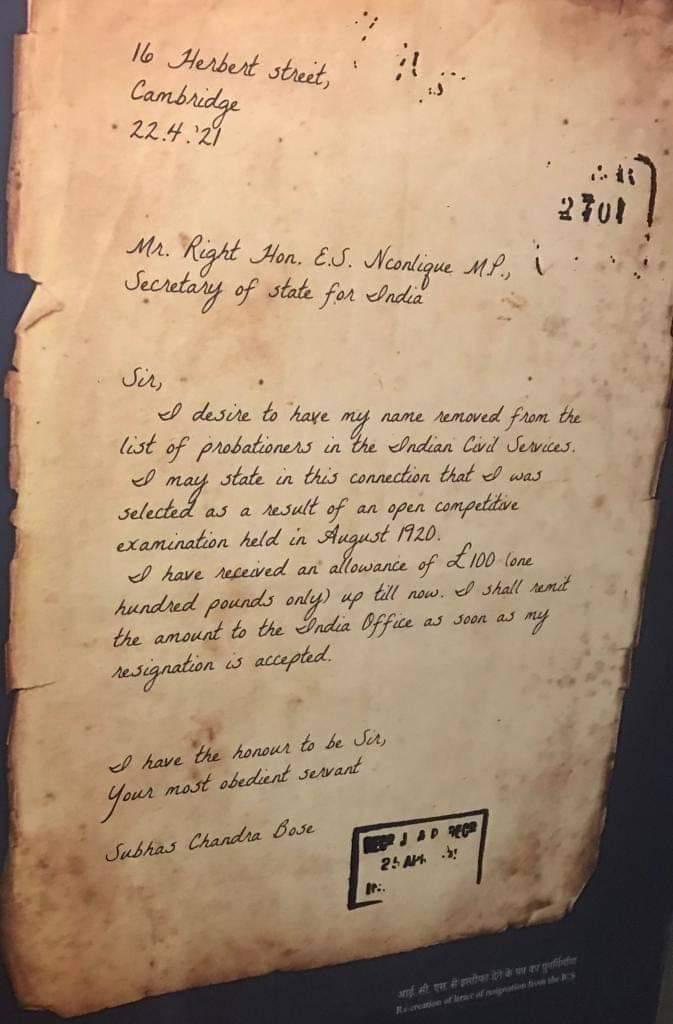 16 Herbert street,
Cambridge
22.4.'21
2701
Mr. Right Hon. E.S. Nconlique M.P.,
Secretary of state for India
Sir,
I desire to have my name removed from the
list of probationers in the Indian Civil Services.
I may state in this connection that I was
selected as a result of an open competitive
examination held in August 1920.
I have received an allowance of £100 (one
hundred pounds only) up till now. I shall remit
the amount to the India Office as soon as my
resignation is accepted.
I have the honour to be Sir,
Your most obedient servant
Subhas Chandra Bose
आई. सी. एस. से इस्तीफा देने के पत्र का पुनर्निर्माण
Re-creation of letter of resignation from the ICS